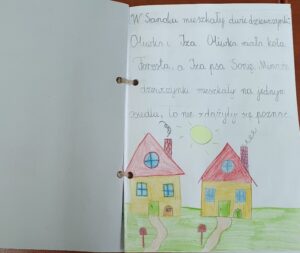 W Sanoku mieszkały dwie dziewczynki
Oliwka i Iza. Oliwka miała kota
Foresta, a Iza psa Sonię. Mimo że
dziewczynki mieszkały na jednym
osiedlu, to nie zdążyły się poznać.